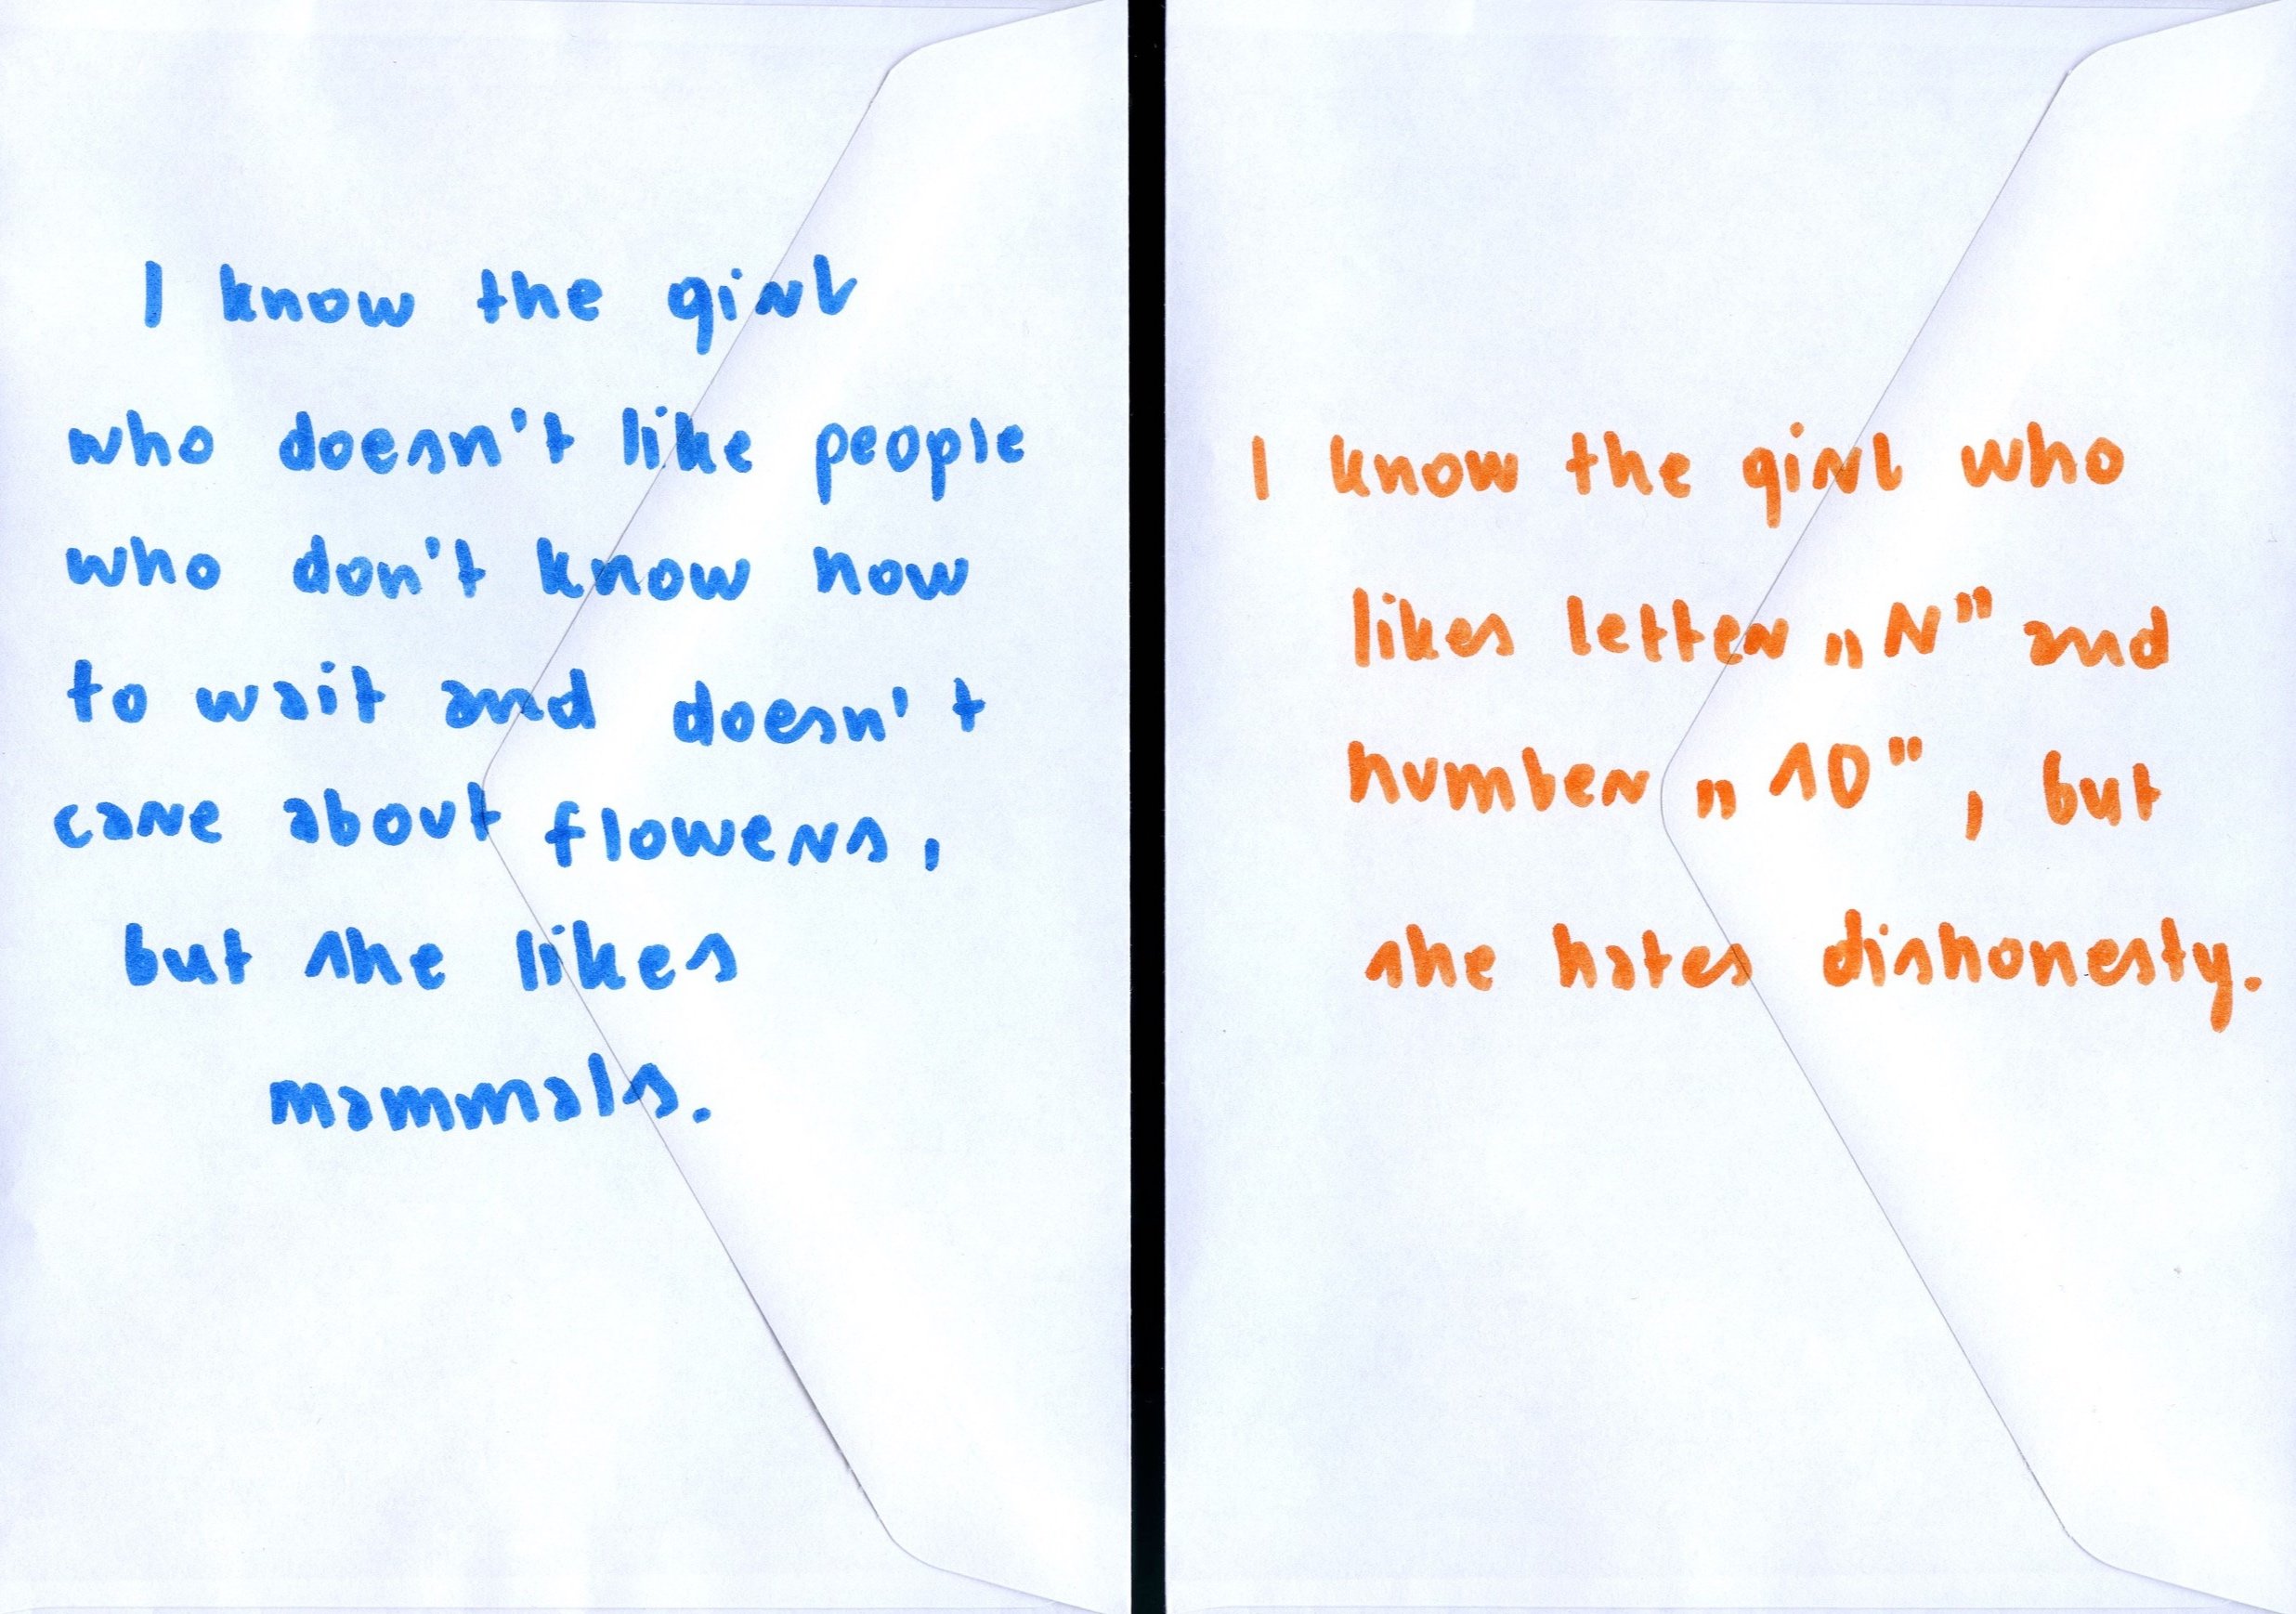 I know the girl
who doesn't like people
who don't know how
to wait and doesn't
care about flowers,
but she likes
mammals.
I know the girl who
likes letter „N” and
number „10”, but
she hates dishonesty.